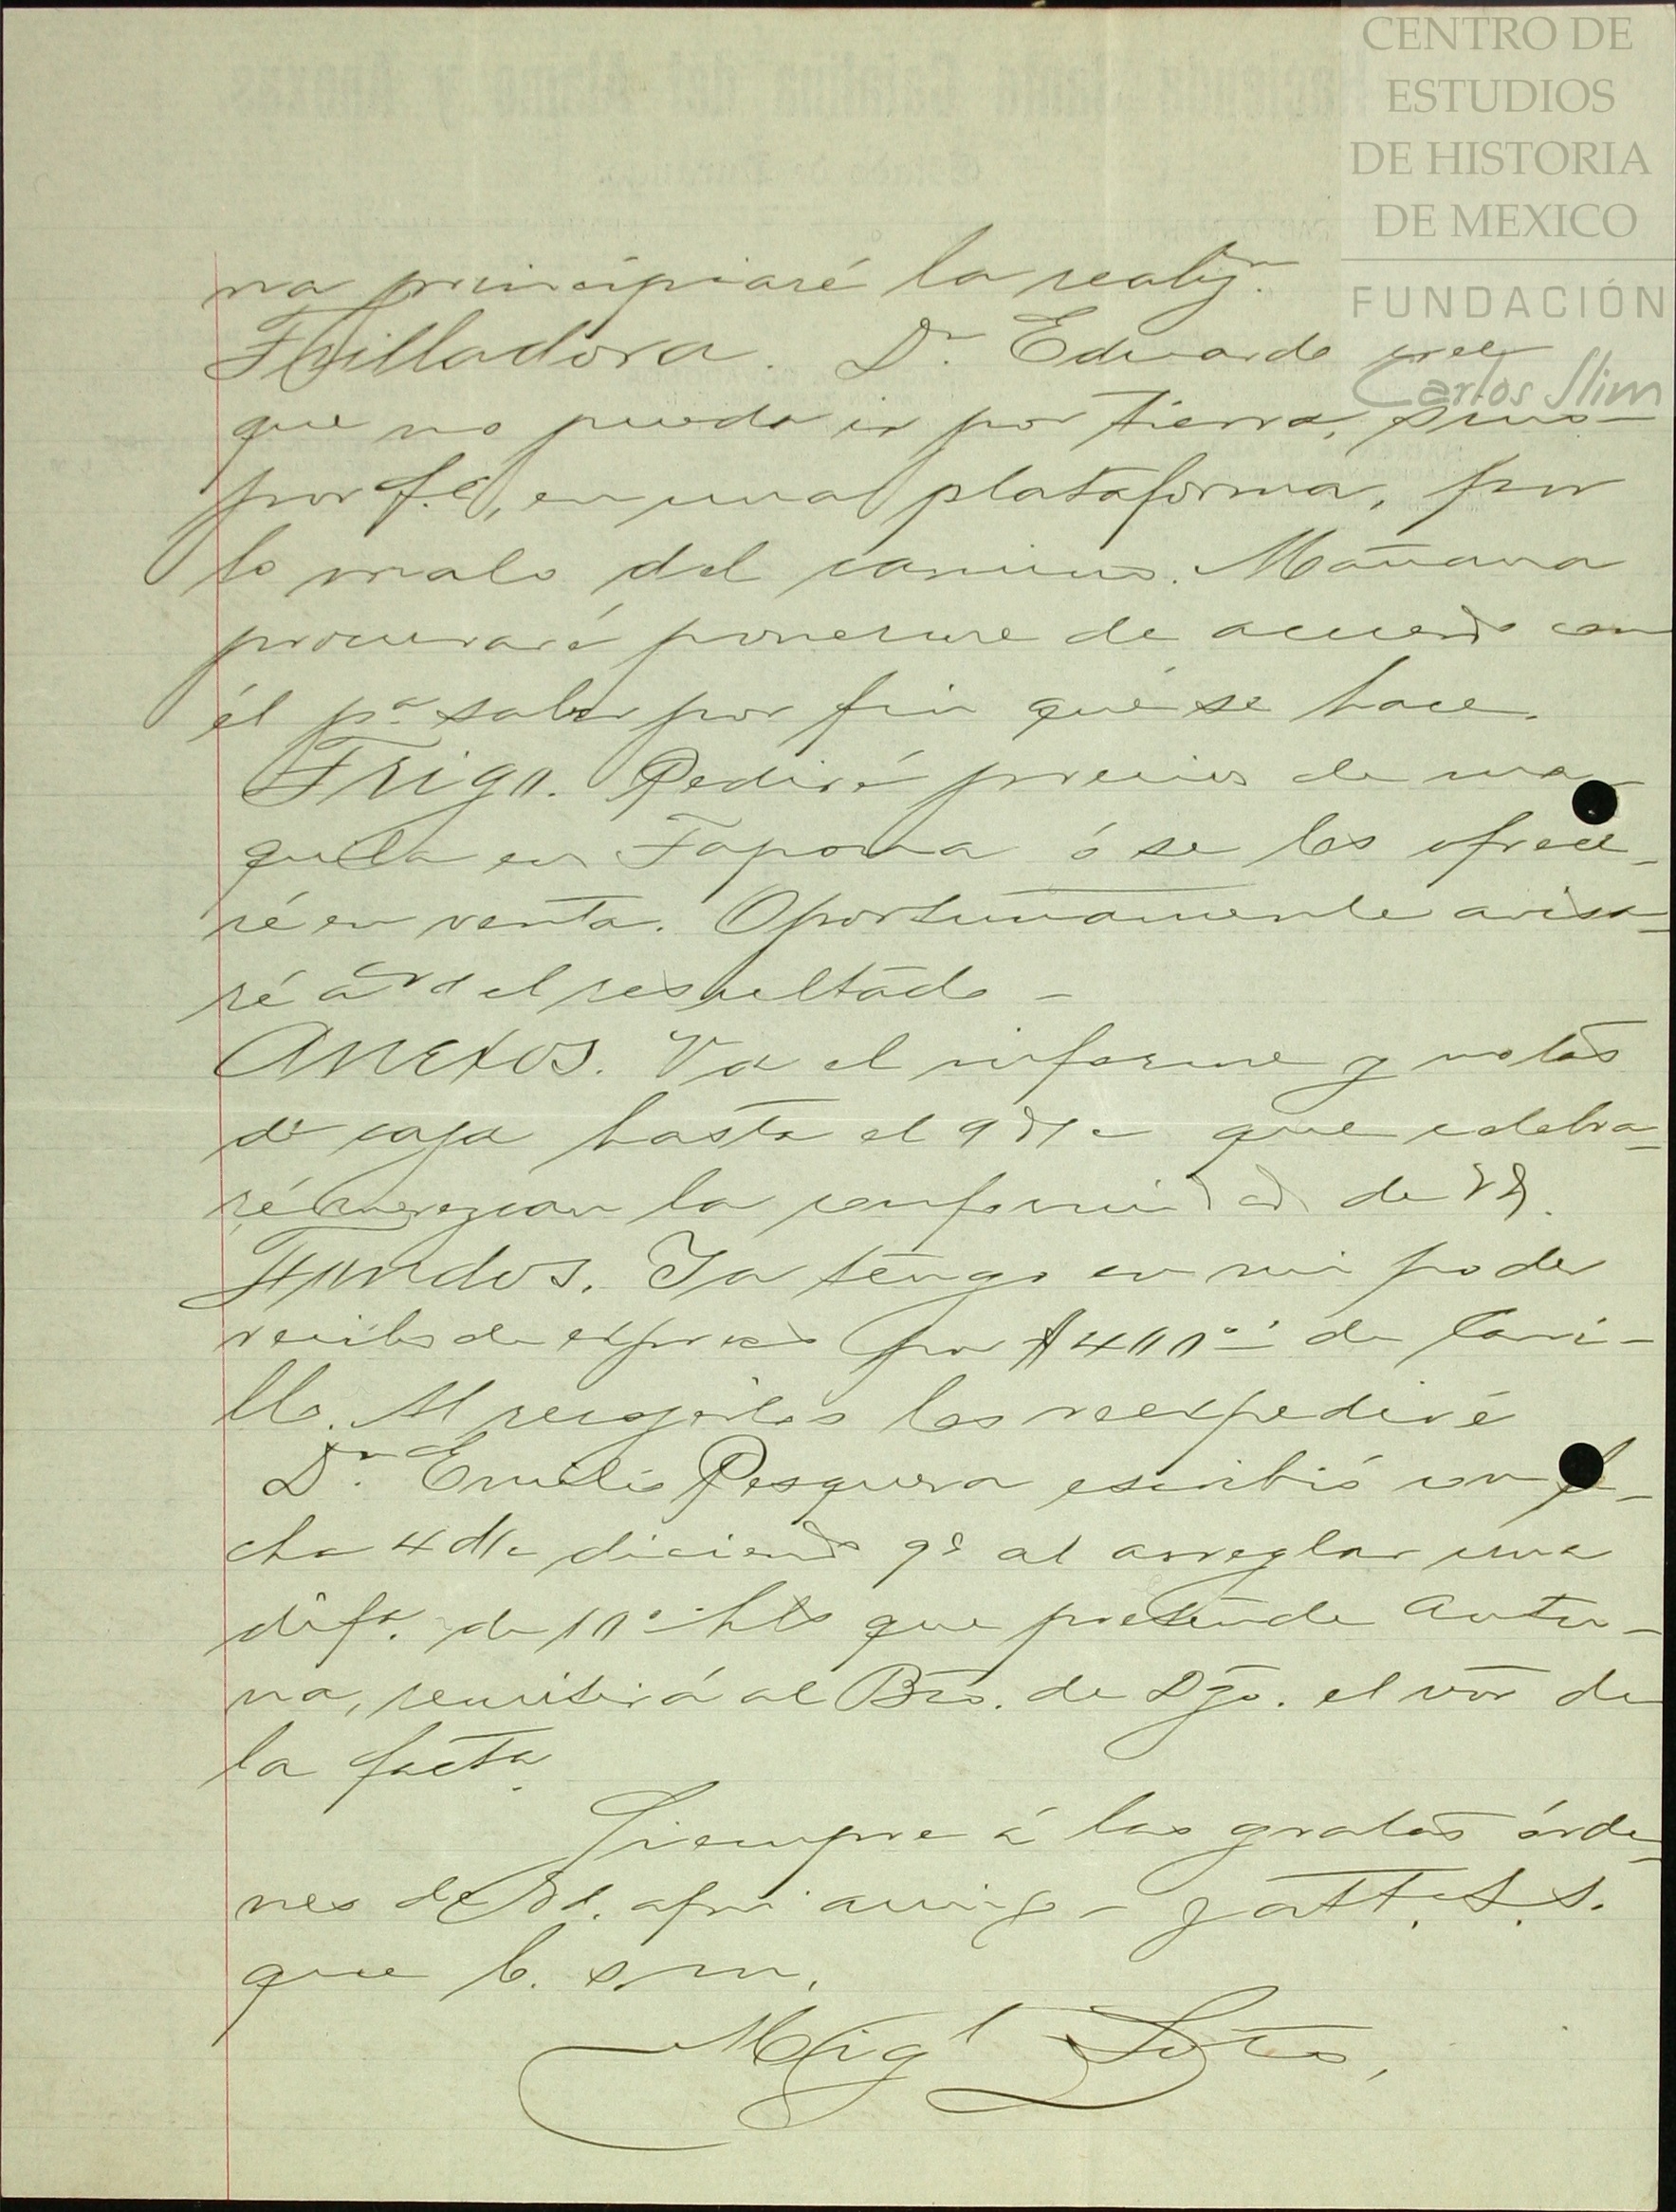 CENTRO DE
ESTUDIOS
DE HISTORIA
DE MEXICO
FUNDACIÓN
Carlos Slim
na principiaré la realizn.
Trilladora. Dn. Eduardo cree
que no pueda ir por tierra, sino
por f.c., en una plataforma, por
lo malo del camino. Mañana
procuraré ponerme de acuerdo con
él pa. saber por fin qué se hace.
Trigo. Pediré precios de ma-
quila en ó se les ofrece-
ré en venta. Oportunamente avisa-
ré á Vd el resultado -
Anexos. Va el informe y notas
de caja hasta el 9 que celebra-
ré merezcan la conformidad de VV.
Fondos. Ya tengo en mi poder
recibo de expreso por $400 de Carri-
llo. Al recojerlos los reexpediré
Dn. Emilio Pesquera escribió con fe-
cha 4 diciendo qe al arreglar una
difa. de 10 hls que pretende Antu-
na, remitirá al Bco. de Dgo. el vor de
la facta.
Siempre á las gratas órde-
nes de Vd. afmi amigo - y att. S. S.
que b. s m.
Migl Soto,